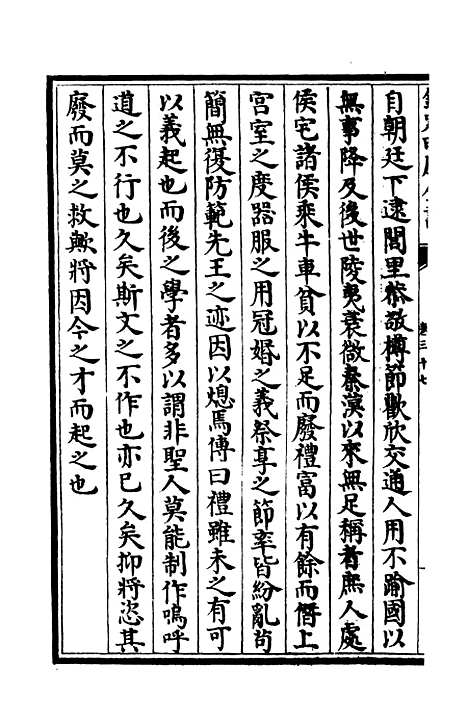 自朝廷下逮閭里恭敬樽節歡欣交通人用不踰國以
無事降及後世陵夷衰微秦漢以來無足稱者庶人處
侯宅諸侯乘牛車貧以不足而廢禮富以有餘而僭上
宫室之度器服之用冠婚之義祭享之節率皆紛亂苟
簡無復防範先王之迹因以熄焉傳曰禮雖未之有可
以義起也而後之學者多以謂非聖人莫能制作嗚呼
道之不行也久矣斯文之不作也亦已久矣抑將恣其
廢而莫之救歟將因今之才而起之也